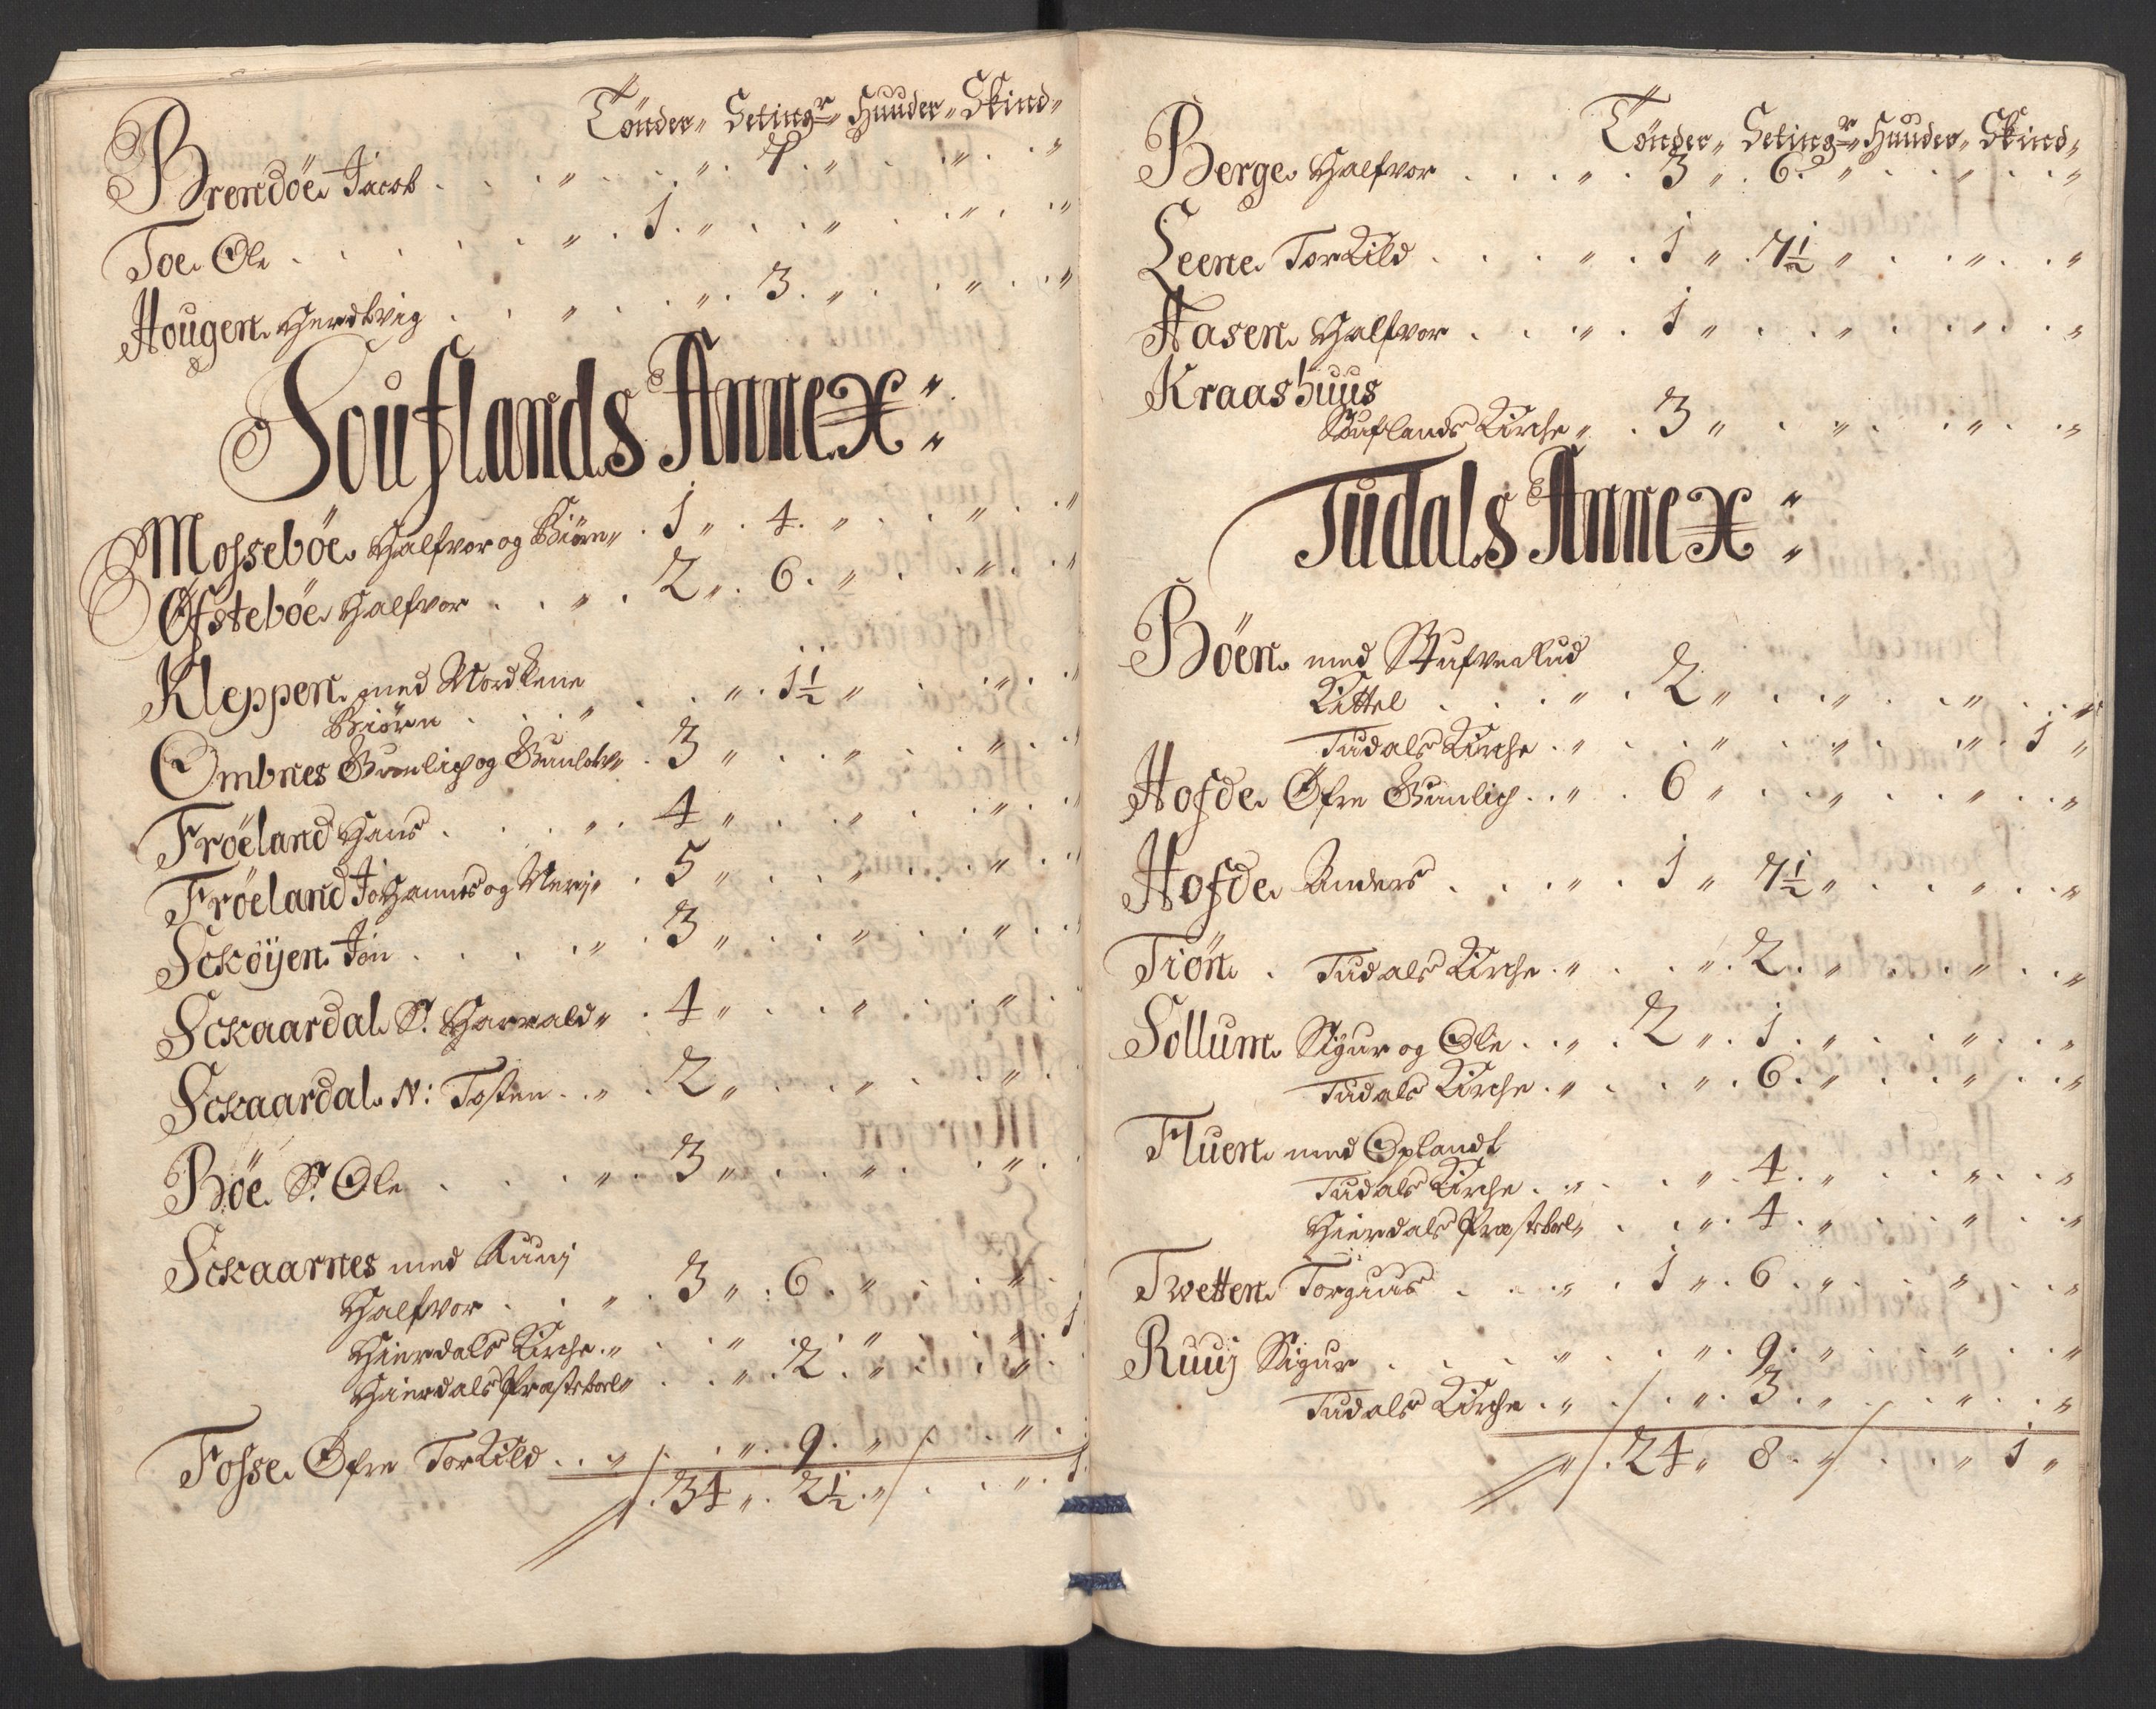 Tönder„ Setingr„ Huuder„ Skind„
Brendöe Jacob . . . „ . . „ . 4 . „ . . „ . . „
Toe Ole . . . . . „ . 1 . „ . . „ . . „ . . „
Hougen . . . „ . . „ . 3 . „ . . „ . . „
Souflands Annex:
Mosseböe Halfvor og Biörn„ . 1 „ . 4 . „ . . „ . . „
Ofsteböe Halfvor . . „ . 2 „ . 6 . „ . . „ . . „
Kleppen med Nordlene
Biörn . . . „ . . „ . 1½ „ . . „ . . „
Ombnes Gunlich og Gunlech„ . 3 „ . . „ . . „ . .
Fröeland Hans . . . „ . 4 „ . . „ . . „ . . „
Fröeland Johannes og Nerij„ . 5 „ . . „ . . „ . .
Scköijen Jon . . . . „ . 3 „ . . „ . . „ . .
Sckaardal S: Harrald„ . 4 „ . . „ . . „ .
Sckaardal N: Tosten . . „ . 2 „ . . „ . . „ .
Böe S: Ole . . . „ . 3 „ . . „ . . „ .
Sckaarnes med Ruuj
Halfvor . . „ . 3 „ . 6 . „ . . „ .
Hierdals Kirche . „ . . „ . . „ . . „ . 1
Hierdals Præsteboel„ . . „ . 2 . „ . . „ .
Fosse Öfre Torkild . . „ . . „ . 9 . „ . . „ .
34 „ . 2½ . „ . . „ . 1
Tönder„ Setingr„ Huuder„ Skind„
Berge Halfvor . . . „ . 3 „ . 6 . „ . . „ . . „
Leene Torkild . . . „ . 1 „ . 7½ „ . . „ . . „
Aasen Halfvor . . . „ . 1 „ . . „ . . „ . . „
Kraashuus
Souflands Kirche „ . 3 „ . . „ . . „ . . „
Tudals Annex:
Böen med
Kittel . . . „ . 2 „ . . „ . . „ . . „
Tudals Kirche . „ . . „ . . „ . . „ . 1 „
Hofde Öfre Gunlich . . „ . 6 „ . . „ . . „ . . „
Hofde Anders . . . „ . 1 „ 7½ „ . . „ . . „
Tiön . Tudals Kirche . „ . . „ . 2 . „ . . „ . . „
Sollum Sigur og Ole . . „ . 2 „ . 1 . „ . . „ . . „
Tudals Kirche . „ . . „ . 6 . „ . . „ . . „
Fluen med Oplandt
Tudals Kirche . „ . . „ . 4 . „ . . „ . . „
Hierdals Præstebol„ . . „ . 4 . „ . . „ . . „
Twetten Torguus . . „ . 1 „ . 6 . „ . . „ . . „
Ruuj Sigur . . . „ . . „ . 9 . „ . . „ . . „
Tudals Kirche . „ . . „ . 3 . „ . . „ . . „
„ . 24 „ 8 . „ . . „ 1 „